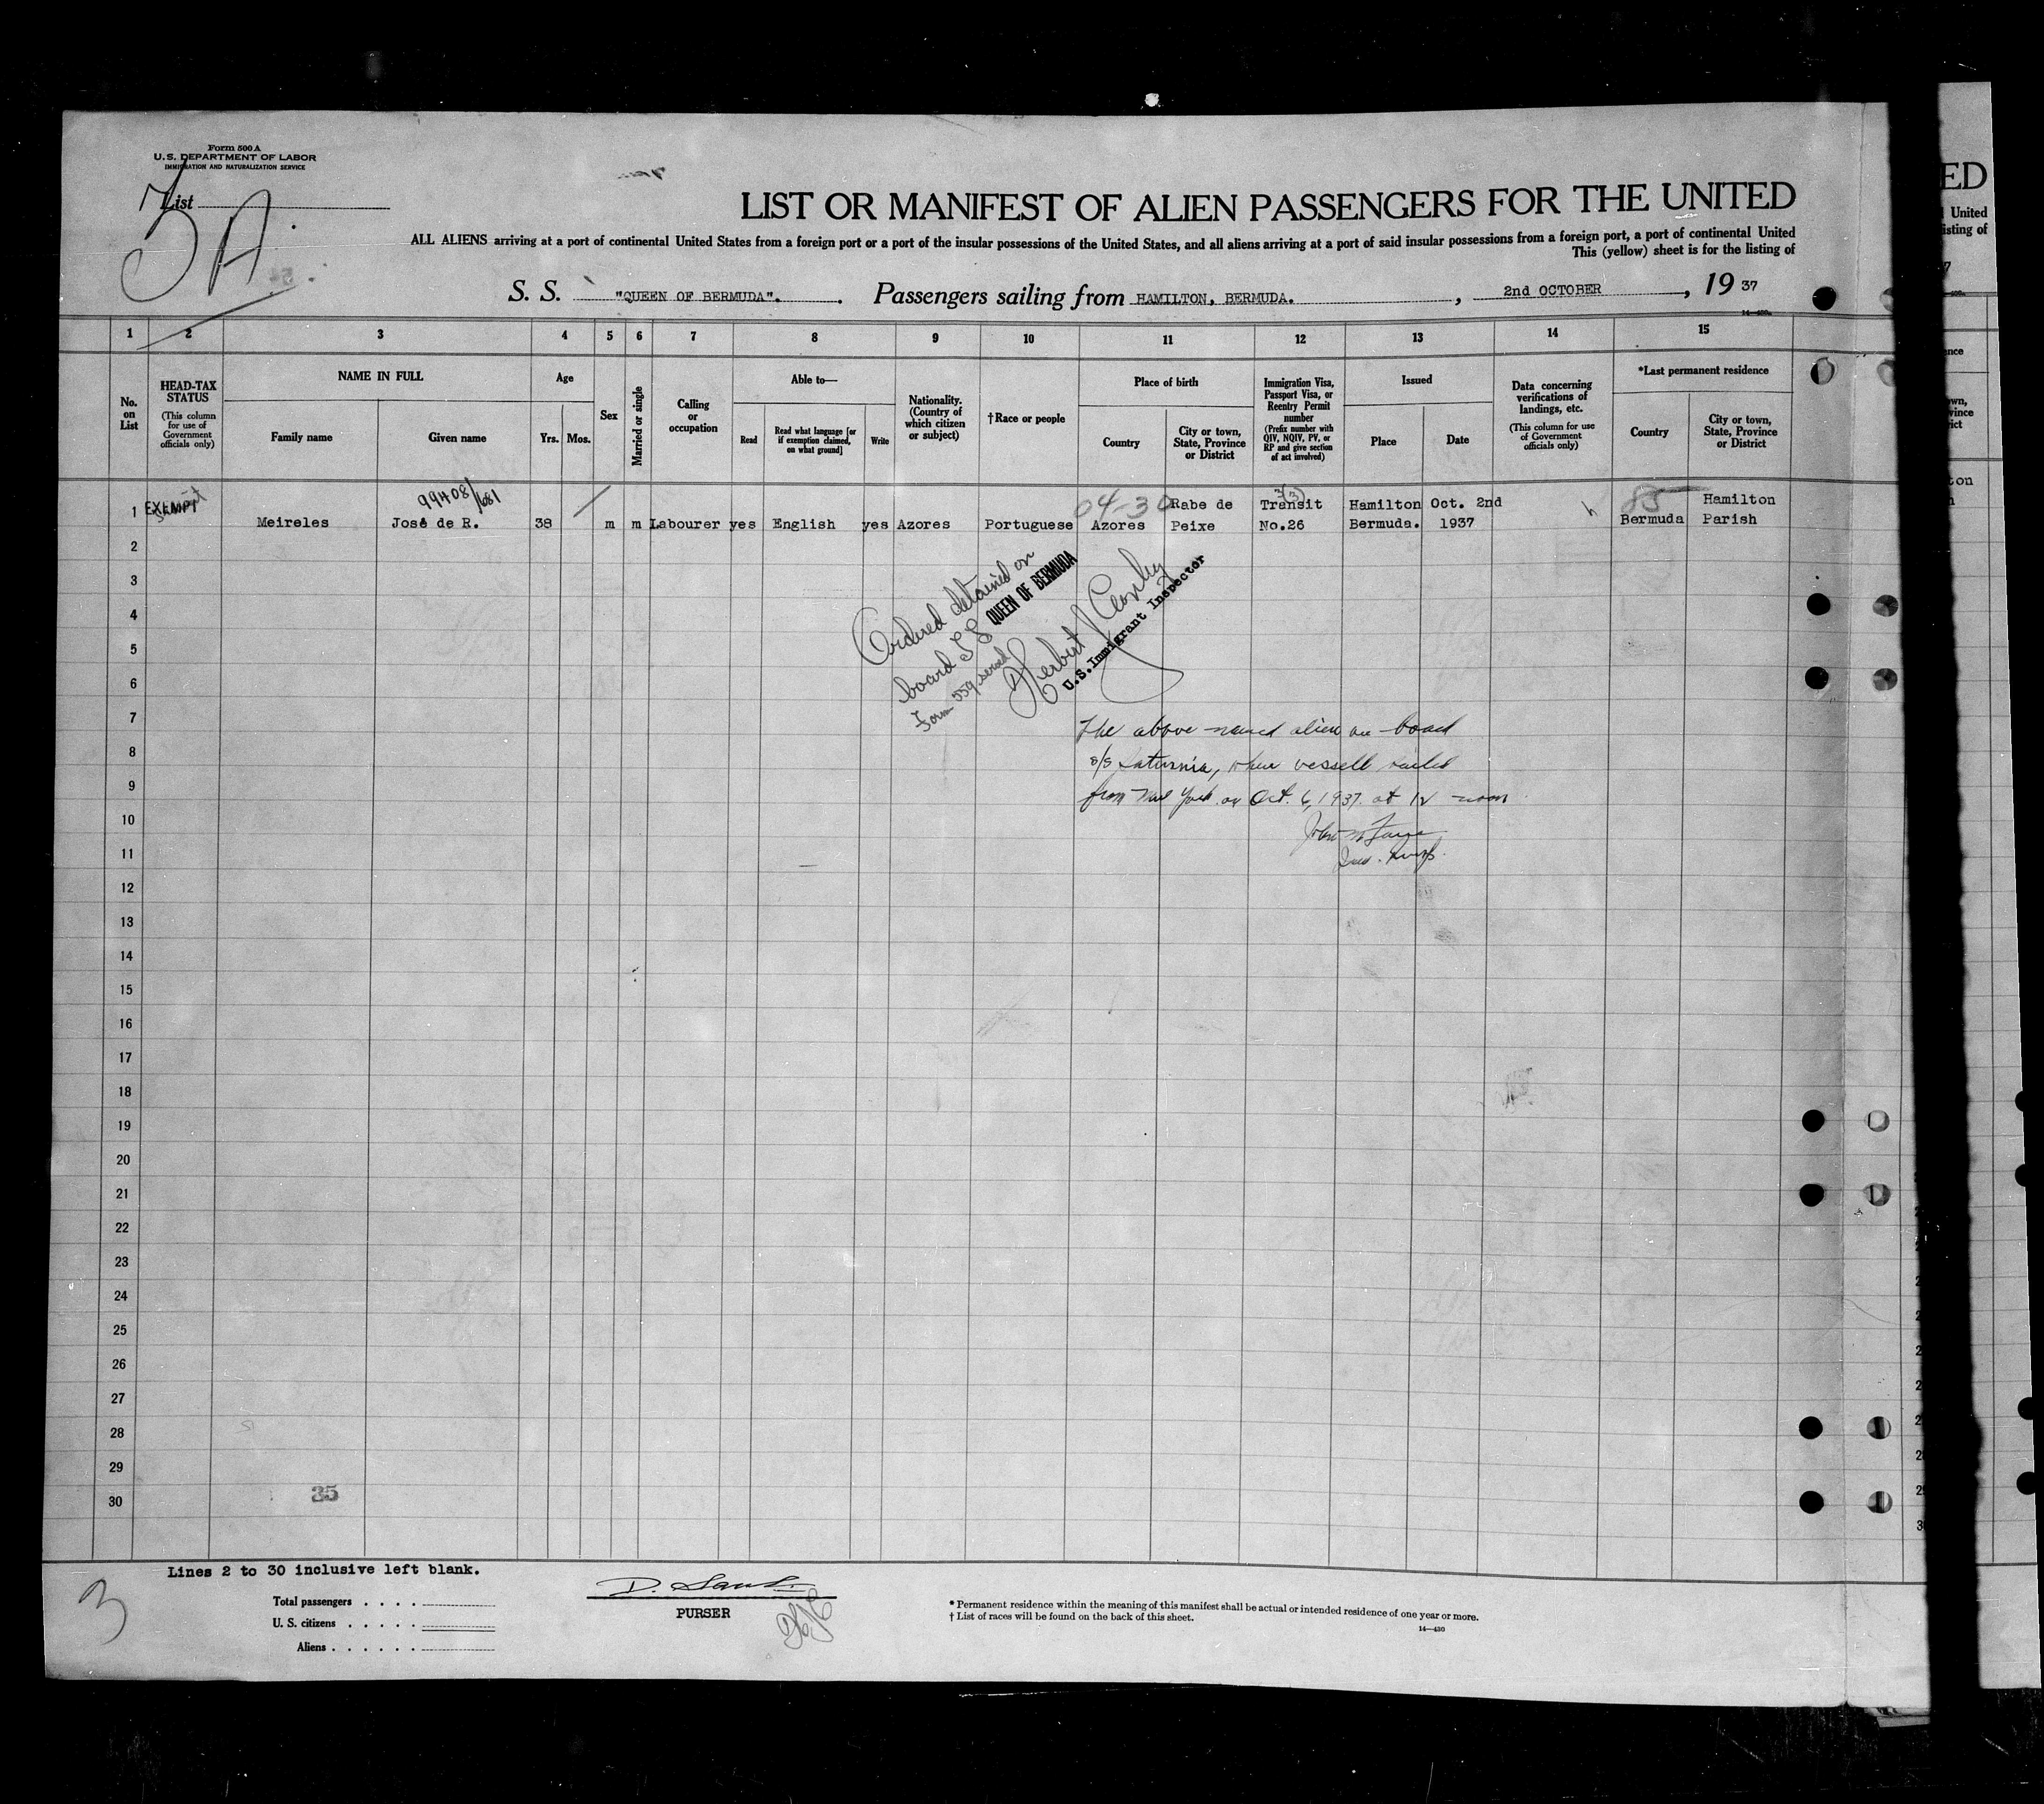 Form 500 A
U.S. DEPARTMENT OF LABOR
IMMIGRATION AND NATURALIZATION SERVICE
List
5A
LIST OR MANIFEST OF ALIEN PASSENGERS FOR THE UNITED
ALL ALIENS arriving at a port of continental United States from a foreign port or a port of the insular possessions of the United States, and all aliens arriving at a port of said insular possessions from a foreign port, a port of continental United
This (yellow) sheet is for the listing of
S. S. "QUEEN OF BERMUDA". Passengers sailing from HAMILTON, BERMUDA. , 2nd OCTOBER , 19 37
1 2 3 4 5 6 7 8 9 10 11 12 13 14 15
No. on List
HEAD-TAX STATUS
(This column for use of Government officials only)
NAME IN FULL
Family name
Given name
Age
Yrs. Mos.
Sex
Married or single
Calling or occupation
Able to—
Read
Read what language [or if exemption claimed, on what ground]
Write
Nationality. (Country of which citizen or subject)
†Race or people
Place of birth
Country
City or town, State, Province or District
Immigration Visa, Passport Visa, or Reentry Permit number
(Prefix number with QIV, NQIV, PV, or RP and give section of act involved)
Issued
Place
Date
Data concerning verifications of landings, etc.
(This column for use of Government officials only)
*Last permanent residence
Country
City or town, State, Province or District
99408/681
04-30
3(3)
85
1 EXEMPT Meireles José de R. 38 m m Labourer yes English yes Azores Portuguese Azores Rabe de Peixe Transit No.26 Hamilton Bermuda. Oct. 2nd 1937 Bermuda Hamilton Parish
2
3
4
5
6
7
8
9
10
11
12
13
14
15
16
17
18
19
20
21
22
23
24
25
26
27
28
29
30
Ordered detained on
board SS QUEEN OF BERMUDA
Form 559 served
Herbert
U.S. Immigrant Inspector
The above named alien on board
s/s Saturnia, when vessell sailed
from New York on Oct. 6, 1937. at 12 noon
John
35
Lines 2 to 30 inclusive left blank.
3
Total passengers . . . .
U. S. citizens . . . . .
Aliens . . . . . .
D.
PURSER
* Permanent residence within the meaning of this manifest shall be actual or intended residence of one year or more.
† List of races will be found on the back of this sheet.
14—430